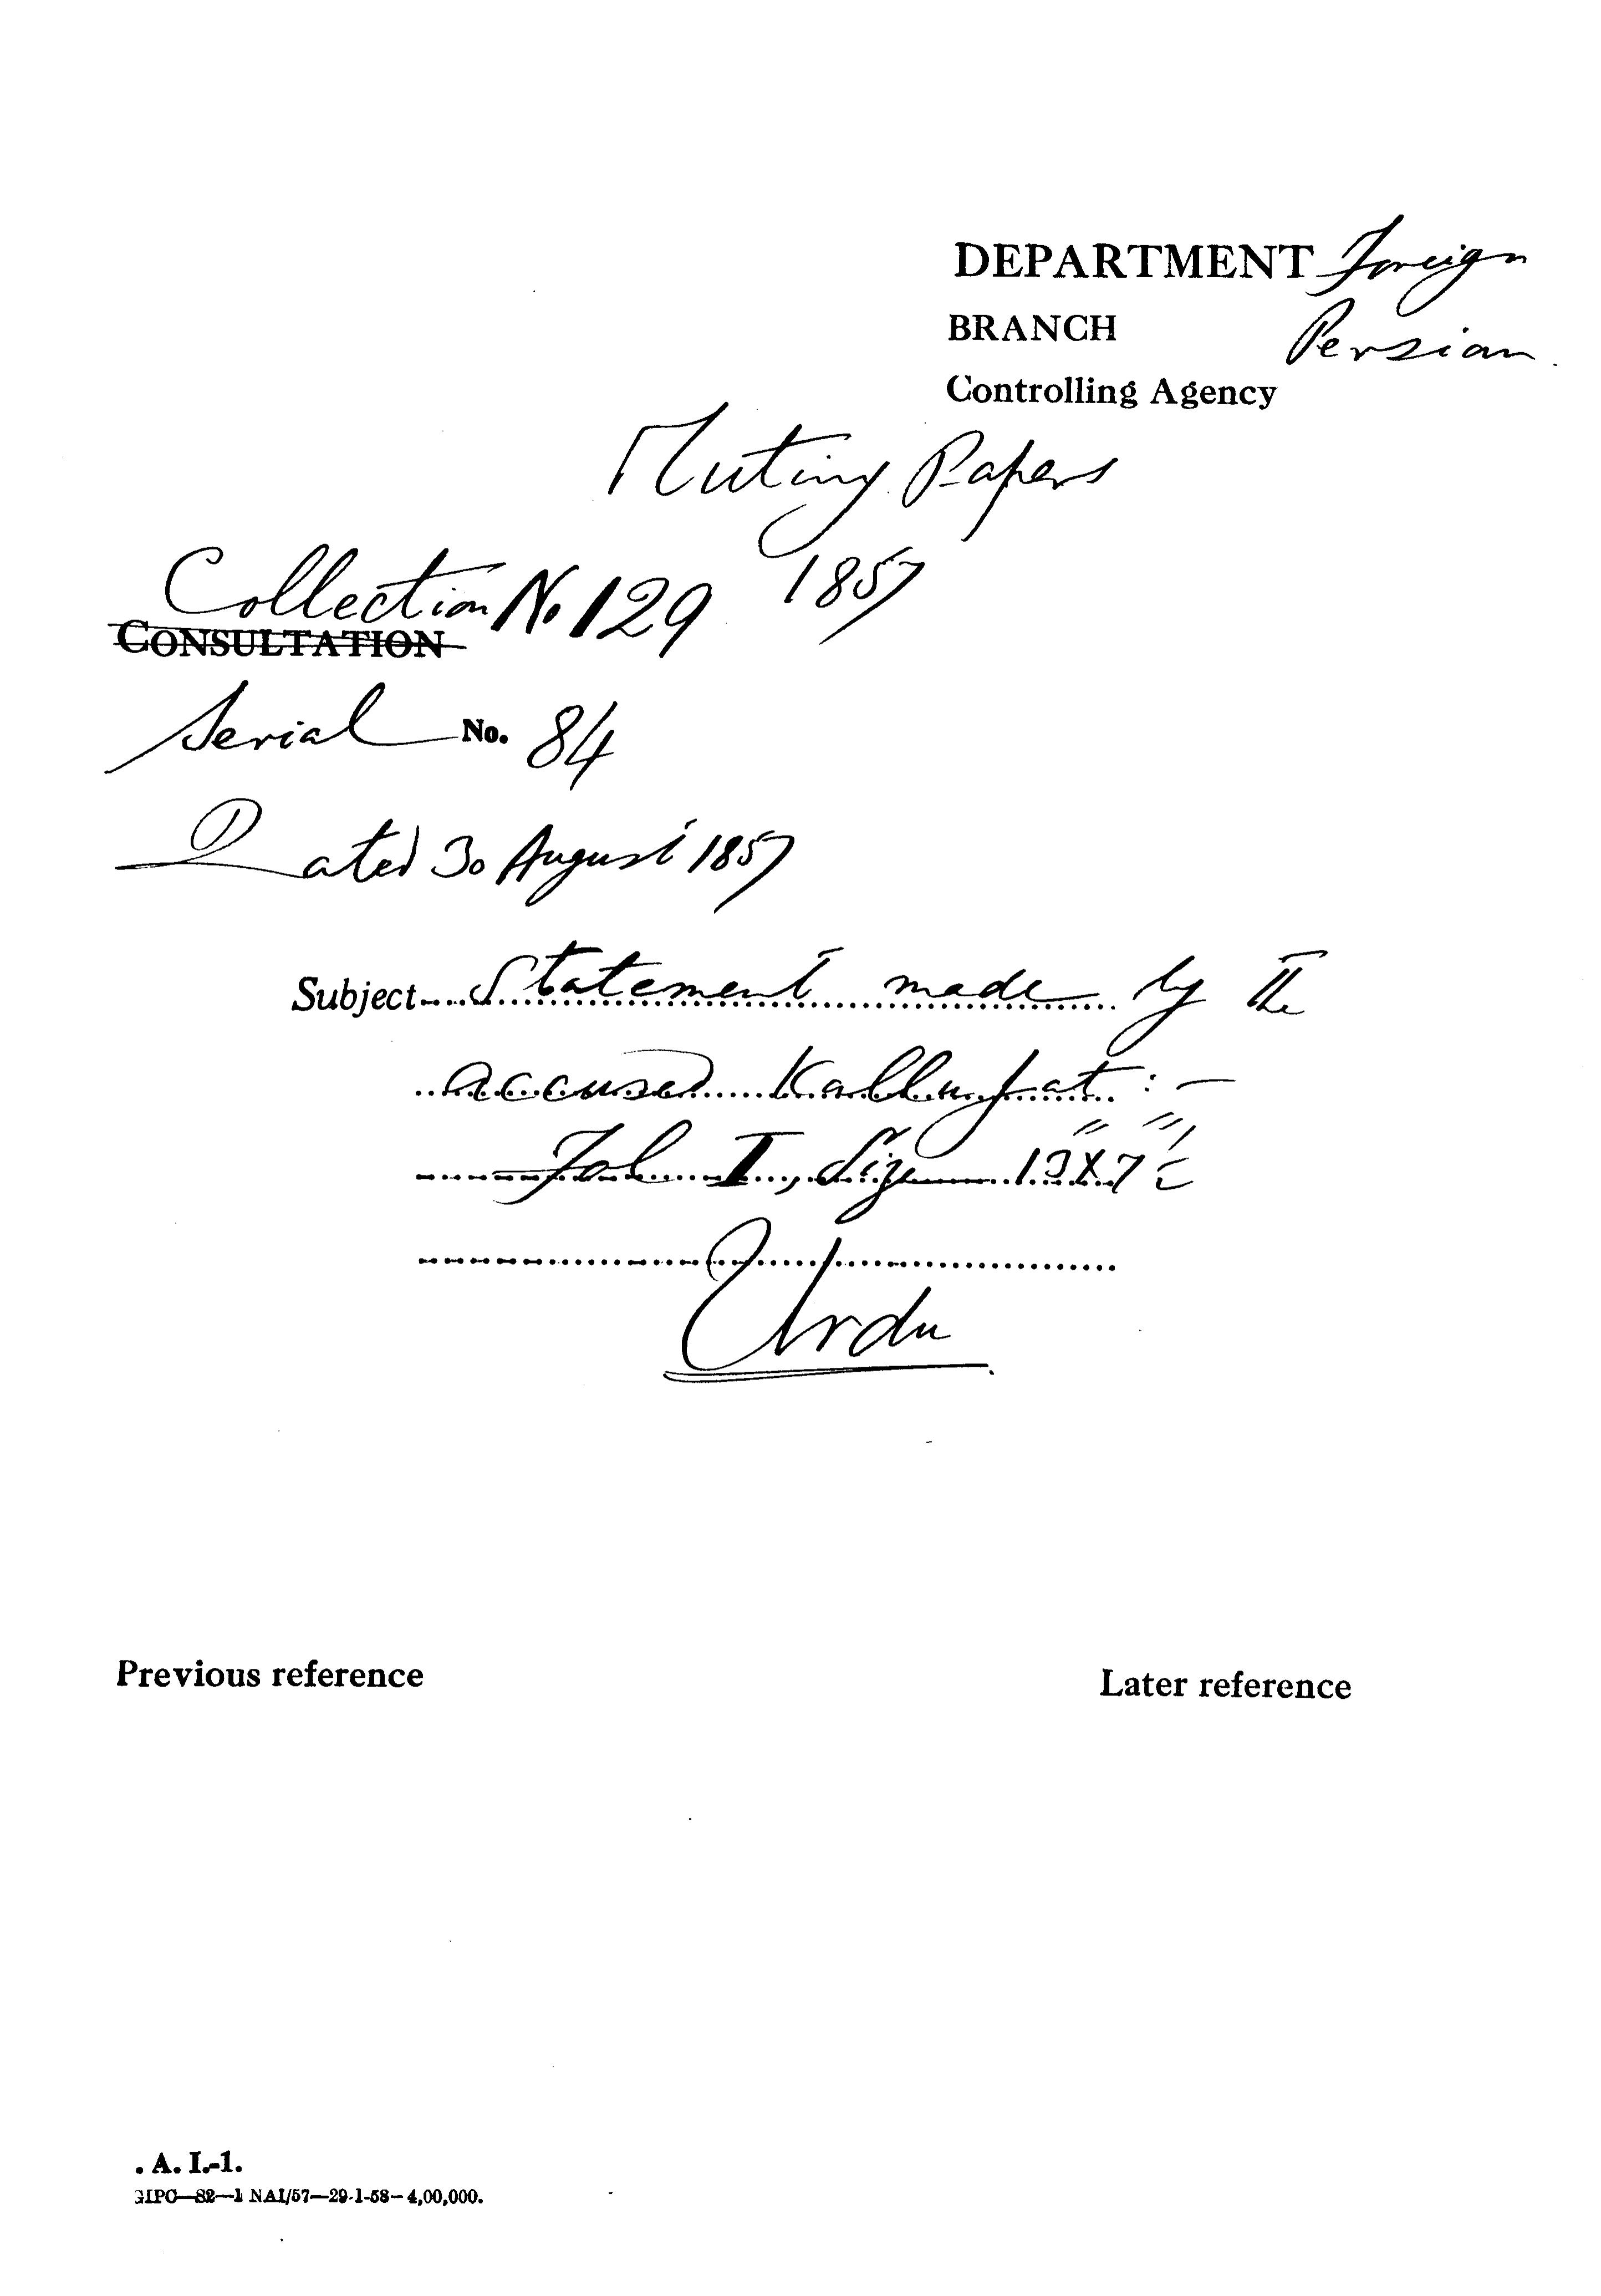 DEPARTMENT Foreign
BRANCH Persian
Controlling Agency
Mutiny Papers
1857
Collection No 129
CONSULTATION
Serial No. 84
Dated 30 August 1857
Subject Statement made by the
accused Kallu Jat :-
Fol I, Size 13" x 7
Urdu
Previous reference
Later reference
. A. I.-1.
GIPC—82—1 NAI/57—29-1-58—4,00,000.